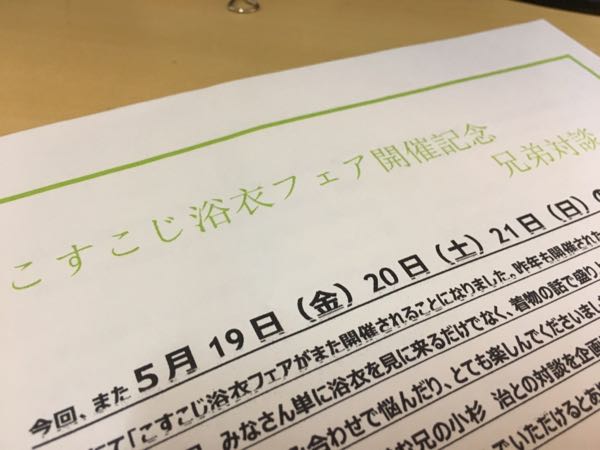 こすこじ浴衣フェア開催記念
兄弟対談
今回、また5月19日（金）20日（土）21日（日）
「こすこじ浴衣フェアがまた開催されることになりました。昨年も開催された
みなさん単に浴衣を見に来るだけでなく、着物の話で盛り
合わせで悩んだり、とても楽しんでくださいまし
兄の小杉 治との対談を企画
いただけるとあ